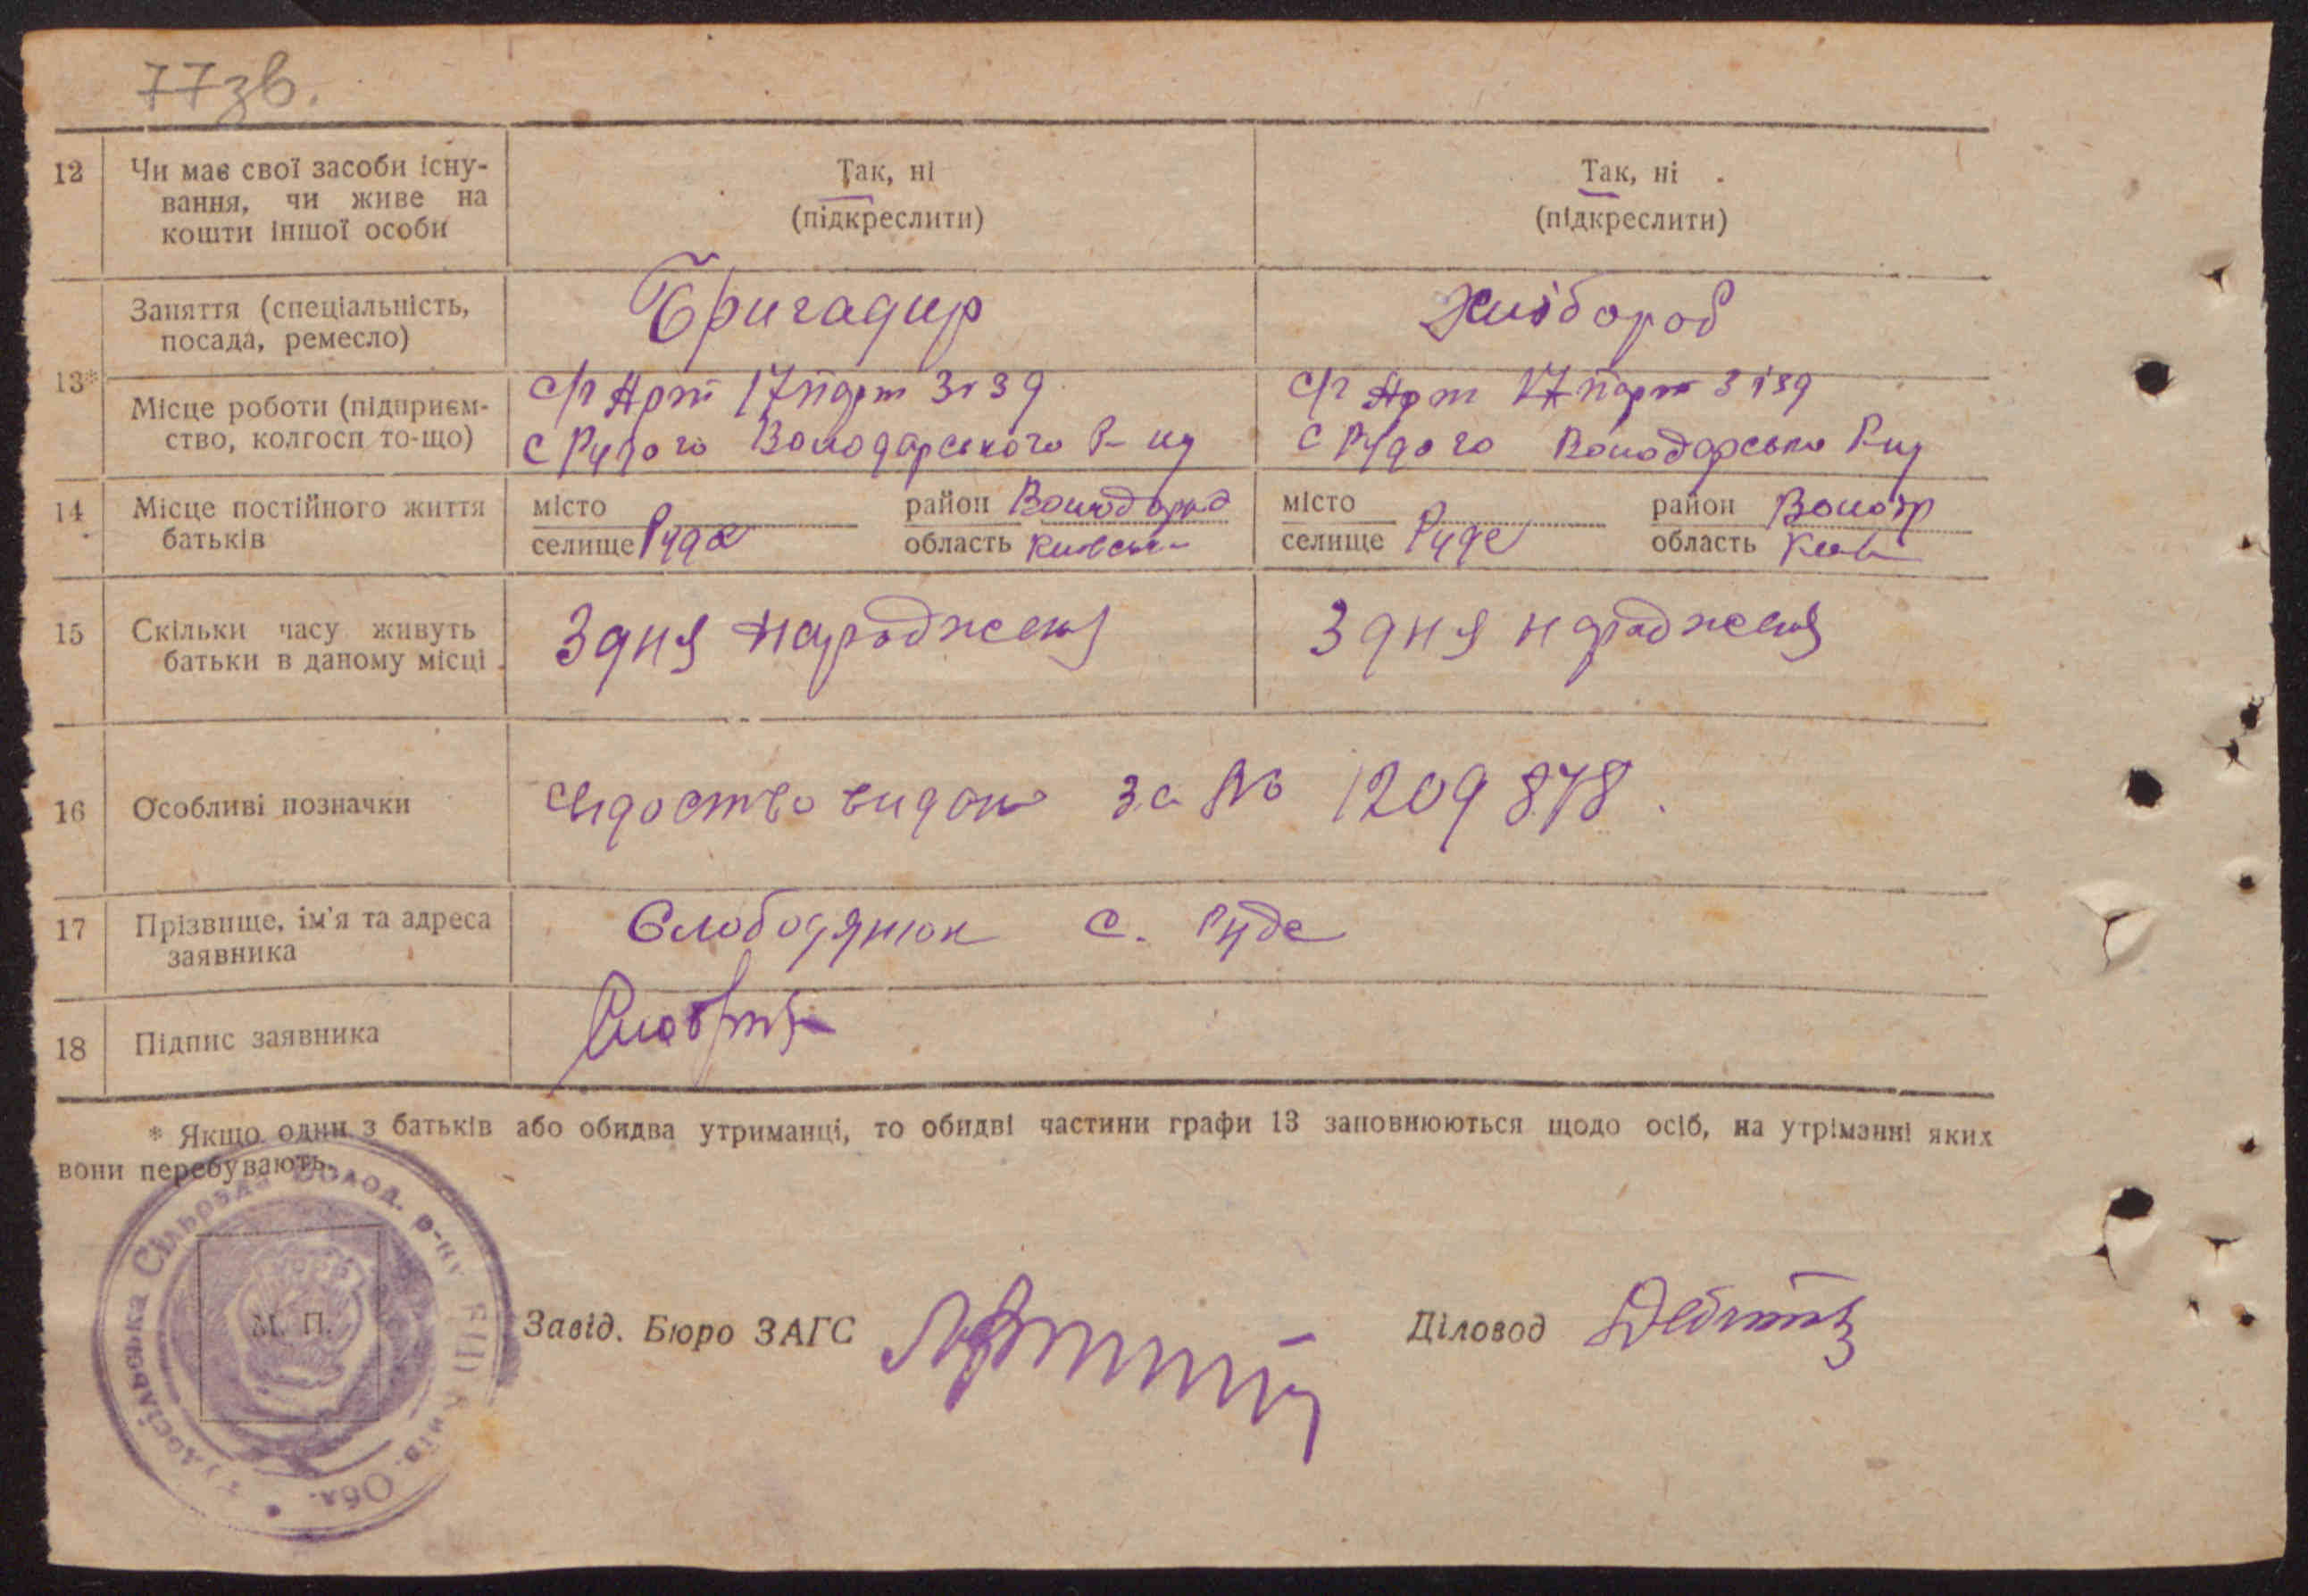 77зв.
12 Чи має свої засоби існу-
вання, чи живе на
кошти іншої особи
Так, ні
(підкреслити)
Так, ні
(підкреслити)
13*
Заняття (спеціальність,
посада, ремесло)
Бригадир
Хлібороб
Місце роботи (підприєм-
ство, колгосп то-що)
с/г Арт 17 парт зізд
с Рудого Володарського Р-ну
с/г Арт 17 парт зізд
с Рудого Володарсько Р-ну
14 Місце постійного життя
батьків
місто
селище Руде
район
область Київськ
місто
селище Руде
район Волод
область Київ
15 Скільки часу живуть
батьки в даному місці
З дня народження
З дня народження
16 Особливі позначки
свідоство видано за № 1209878.
17 Прізвище, ім'я та адреса
заявника
Слободянюк с. Руде
18 Підпис заявника
* Якщо один з батьків або обидва утриманці, то обидві частини графи 13 заповнюються щодо осіб, на утріманні яких
вони перебувають.
Сільрада Волод. р-ну Київ. Обл.
М. П.
Завід. Бюро ЗАГС
Діловод